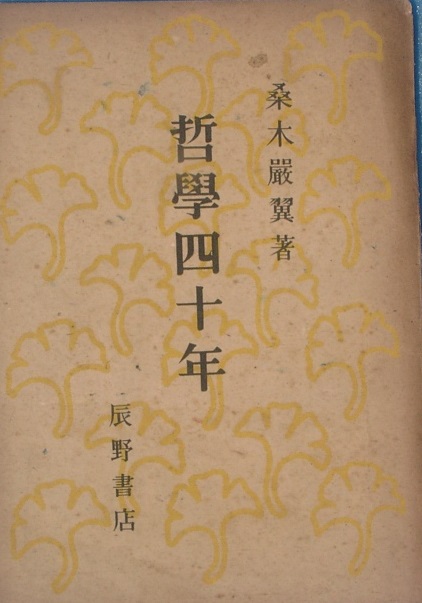 桑木嚴翼著
哲學四十年
辰野書店